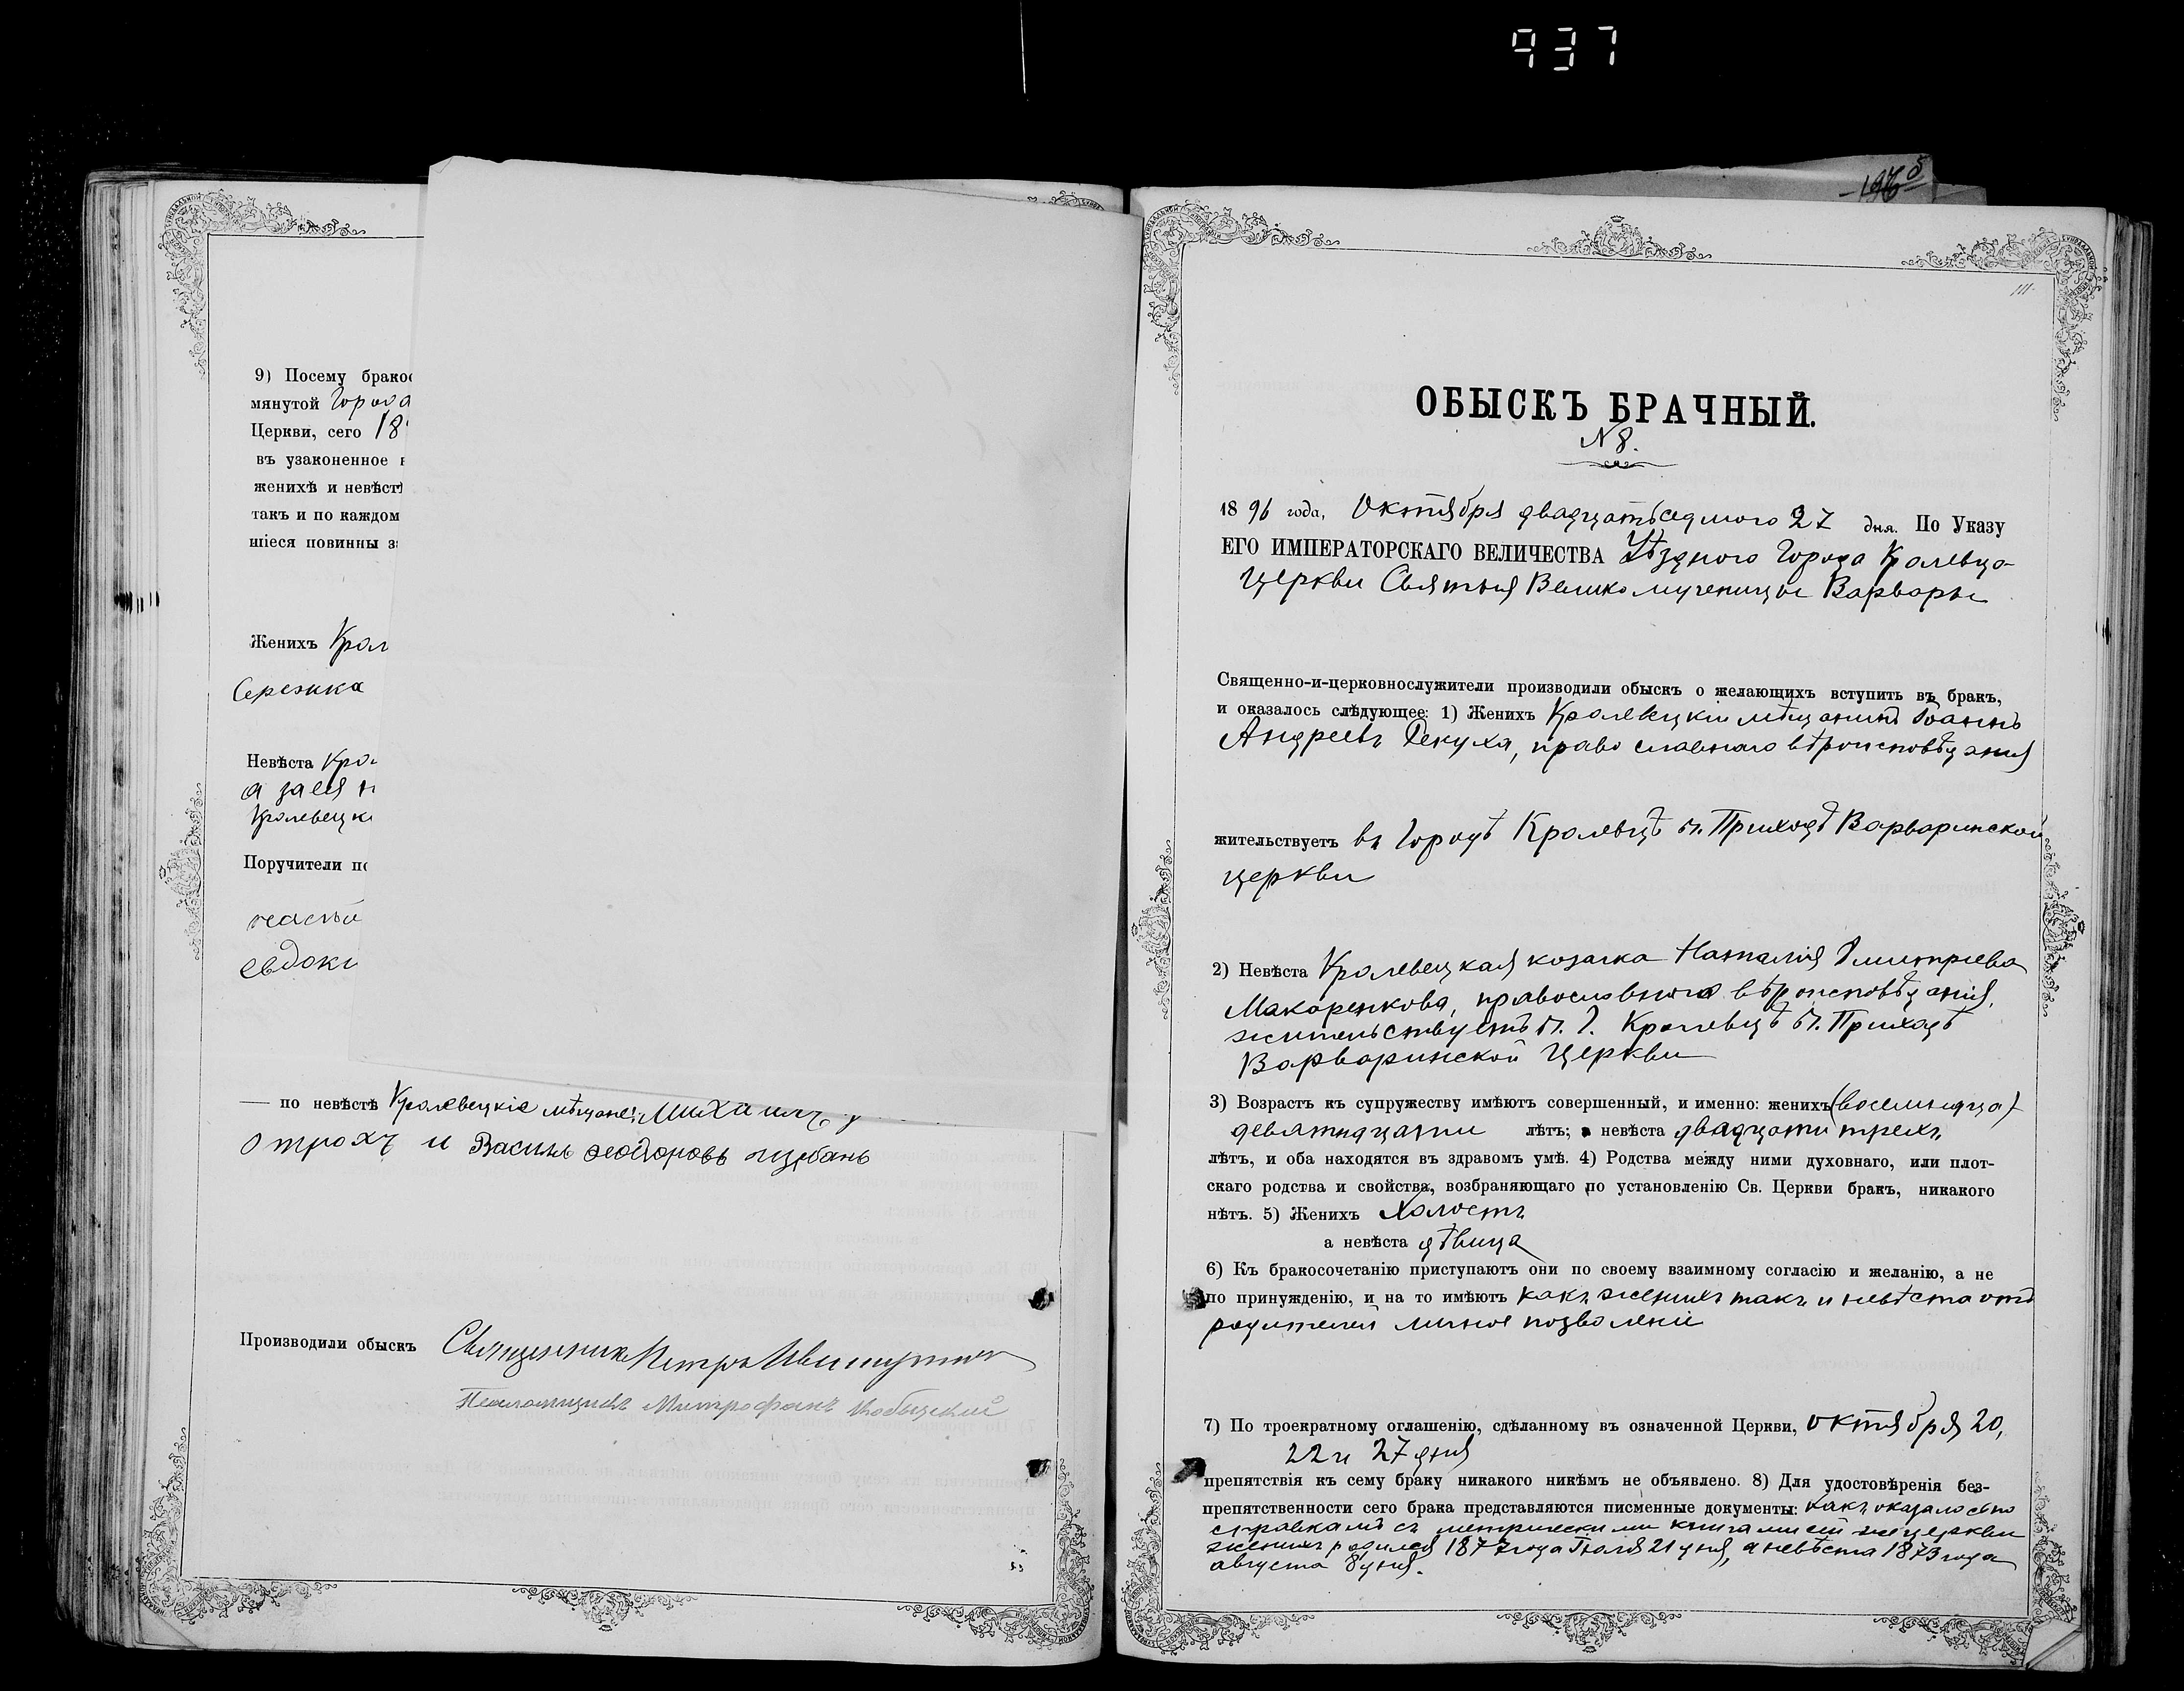 937
9) Посему брако
мянутой Города
Церкви, сего 18
въ узаконенное
женихѣ и невѣст
такъ и по каждом
шіеся повинны з
Женихъ Крол
Сережка
Невѣста Кро
а за нея н
Кролевецк
Поручители по
евдоки
— по невѣстѣ Кролевецкіе мѣщане: Михаилъ
Отрохъ и Василь Феодоровъ
Производили обыскъ Священникъ Петръ
Псаломщикъ Митрофанъ
111.
ОБЫСКЪ БРАЧНЫЙ.
N 8.
1896 года, Октября двадцатьседмого 27 дня. По Указу
ЕГО ИМПЕРАТОРСКАГО ВЕЛИЧЕСТВА Уѣзднаго Города Кролевца
Церкви Святыя Великомученицы Варвары
Священно-и-церковнослужители производили обыскъ о желающихъ вступить въ бракъ,
и оказалось слѣдующее: 1) Женихъ Кролевецкій мѣщанинъ Іоаннъ
Андреевъ Рекуха, православнаго вѣроисповѣданія
жительствуетъ въ Городѣ Кролевцѣ въ Приходѣ Варваринской
церкви
2) Невѣста Кролевецкая козачка Наталія Дмитріева
Макаренкова, православнаго вѣроисповѣданія,
жительствуетъ въ Г. Кролевцѣ въ Приходѣ
Варваринской Церкви
3) Возрастъ къ супружеству имѣютъ совершенный, и именно: женихъ (восемнадца)
девятнадцати лѣтъ; а невѣста двадцати трехъ
лѣтъ, и оба находятся въ здравомъ умѣ. 4) Родства между ними духовнаго, или плот-
скаго родства и свойства, возбраняющаго по установленію Св. Церкви бракъ, никакого
нѣтъ. 5) Женихъ Холостъ
а невѣста дѣвица
6) Къ бракосочетанію приступаютъ они по своему взаимному согласію и желанію, а не
по принужденію, и на то имѣютъ какъ женихъ такъ и невѣста отъ
родителей личное позволеніе
7) По троекратному оглашенію, сдѣланному въ означенной Церкви, октября 20,
22 и 27 дня
препятствія къ сему браку никакого никѣмъ не объявлено. 8) Для удостовѣренія без-
препятственности сего брака представляются писменные документы: какъ оказалось по
справкамъ съ метрическими книгами сей же церкви
женихъ родился 1877 года Іюля 21 дня, а невѣста 1873 года
августа 8 дня.